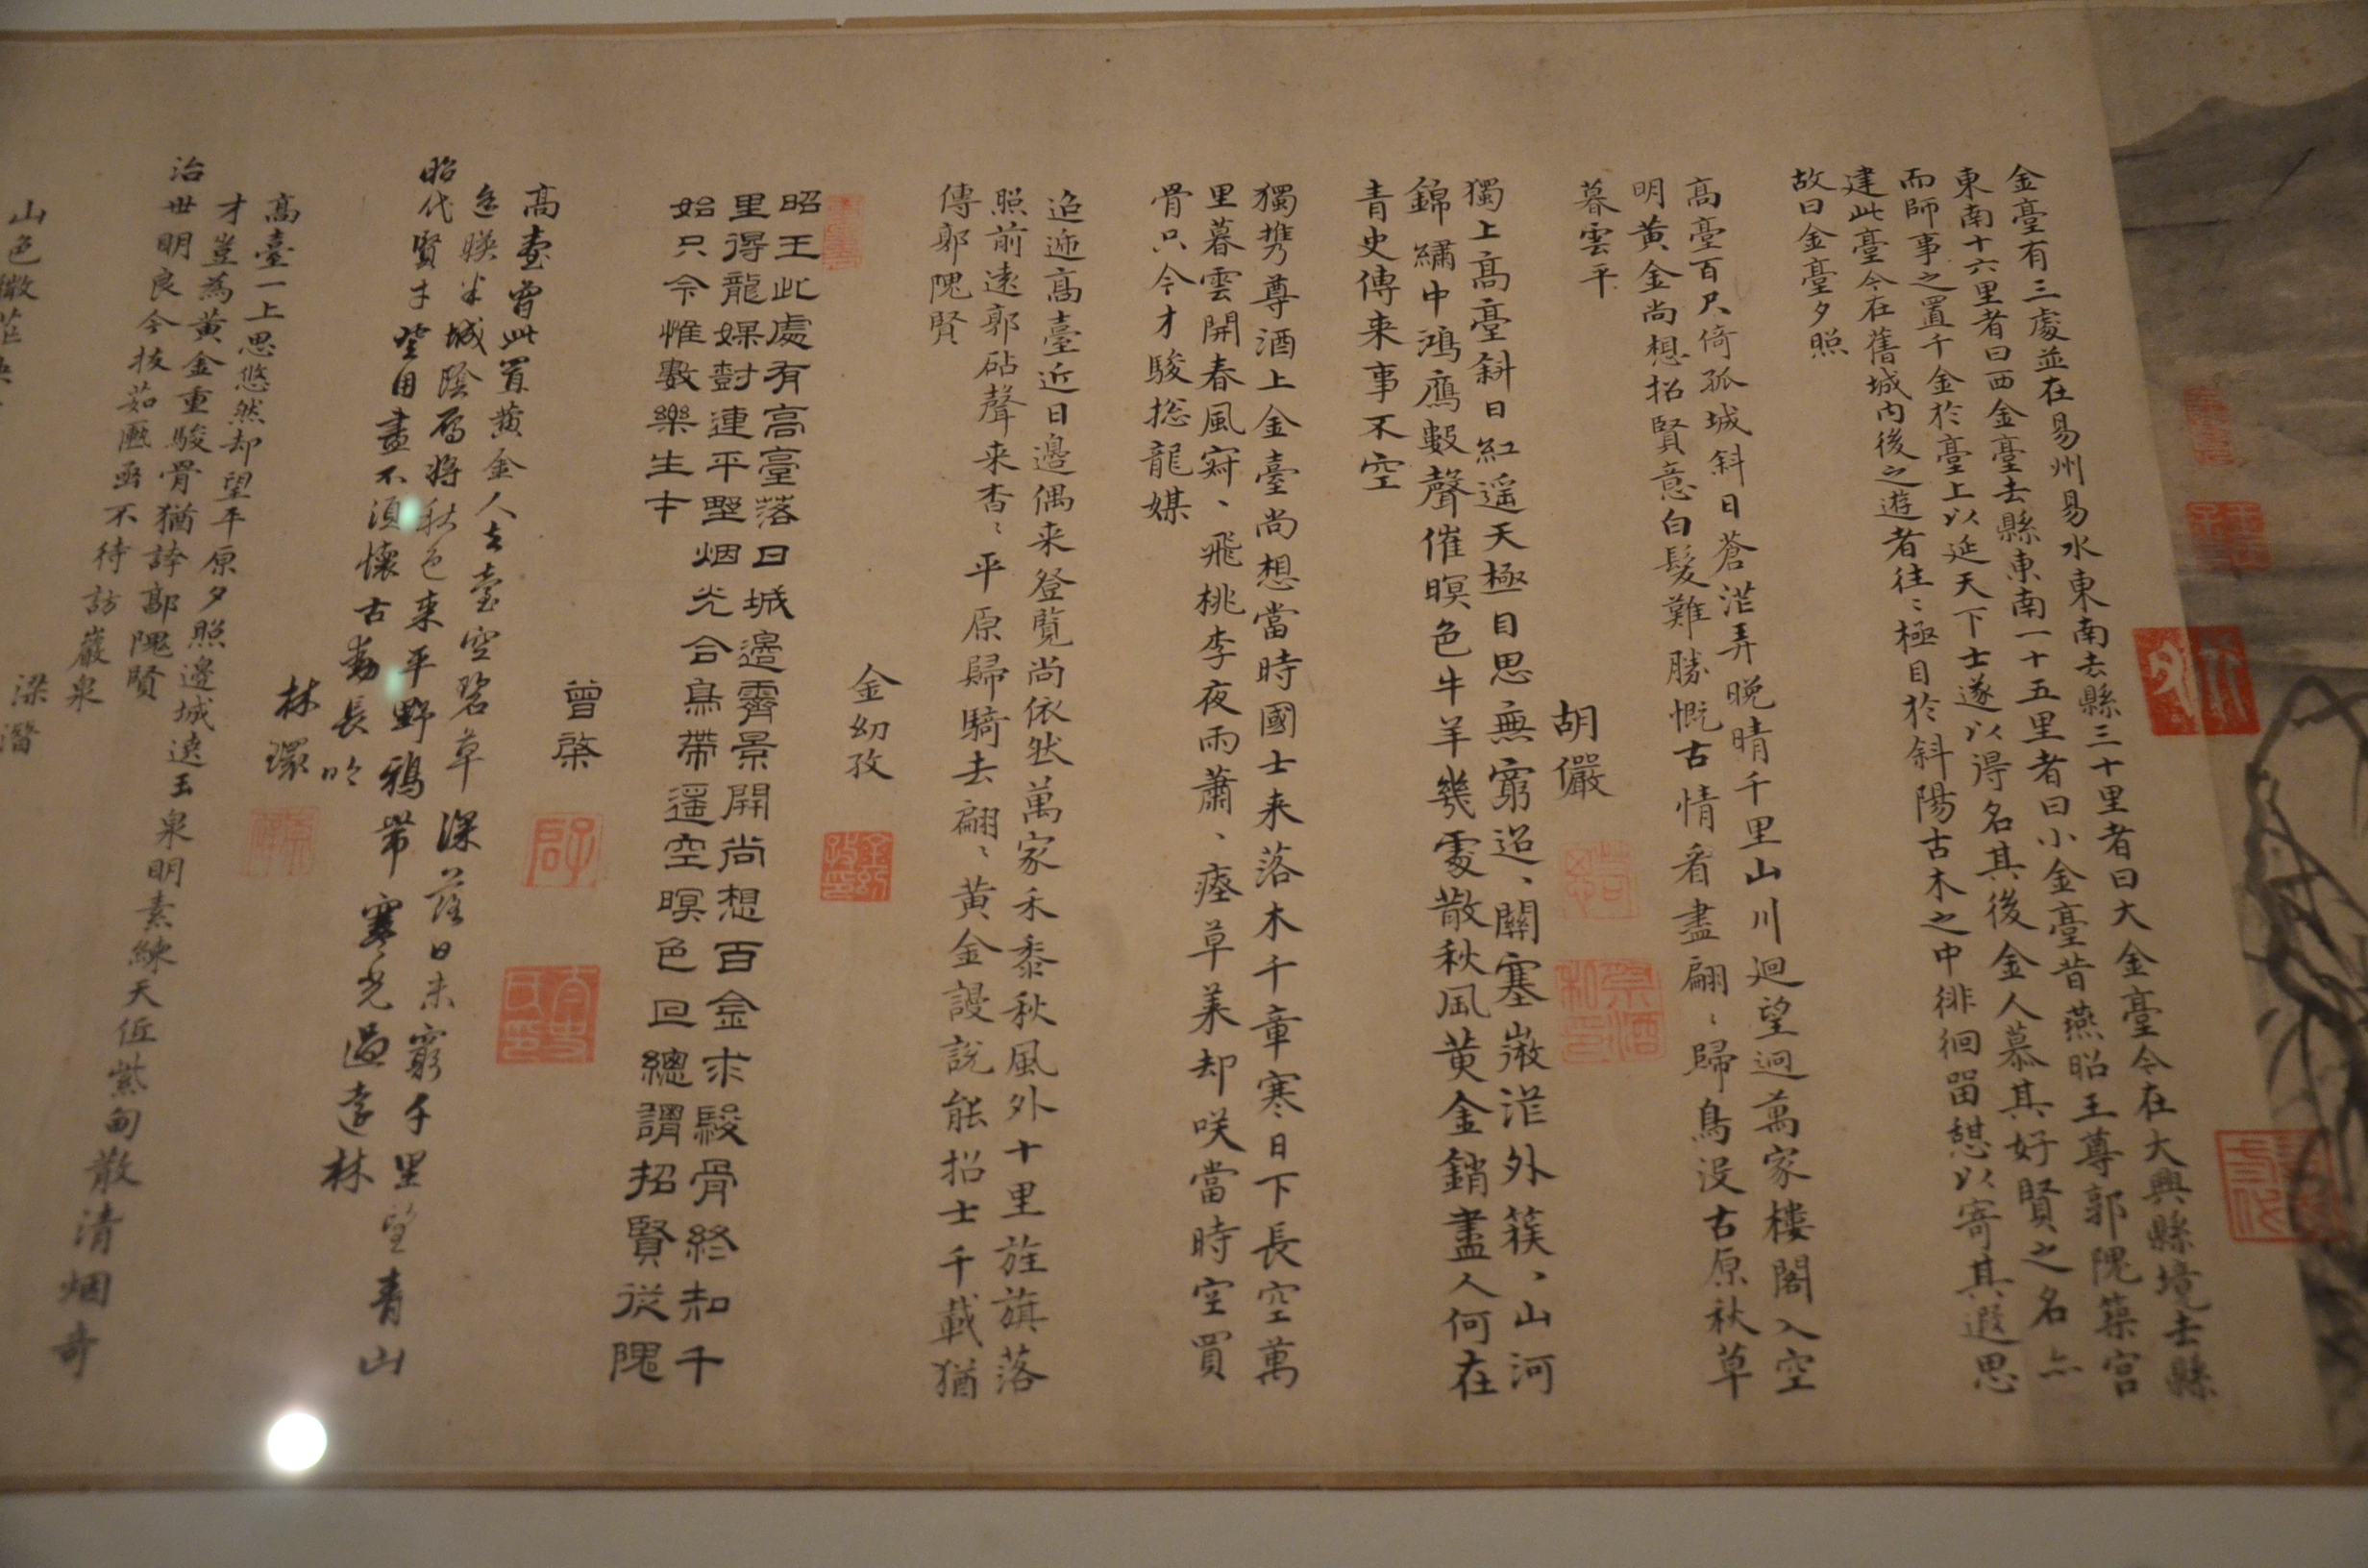 金臺有三處並在易州易水東南去縣三十里者曰大金臺今在大興縣境去縣
東南十六里者曰西金臺去縣東南一十五里者曰小金臺昔燕昭王尊郭隗築宮
而師事之置千金於臺上以延天下士遂以得名其後金人慕其好賢之名亦
建此臺今在舊城内後之遊者往〻極目於斜陽古木之中徘徊留憩以寄其遐思
故曰金臺夕照
高臺百尺倚孤城斜日蒼茫弄晚晴千里山川迴望迥萬家樓閣入空
明黄金尚想招賢意白髮難勝慨古情看盡翩〻歸鳥没古原秋草
暮雲平
胡儼
獨上高臺斜日紅遥天極目思無窮迢〻關塞微茫外簇〻山河
錦繡中鴻鴈數聲催暝色牛羊幾處散秋風黄金銷盡人何在
青史傳来事不空
獨携尊酒上金臺尚想當時國士来落木千章寒日下長空萬
里暮雲開春風寂〻飛桃李夜雨蕭〻瘞草莱却咲當時空買
骨只今才駿捴龍媒
金幼孜
迢遞高臺近日邊偶来登覽尚依然萬家禾黍秋風外十里旌旗落
照前遠郭砧聲来杳〻平原歸騎去翩〻黄金謾說能招士千載猶
傳郭隗賢
昭王此處有高臺落日城邉霽景開尚想百金求駿骨終知千
里得龍媒樹連平野烟光合鳥帶遥空暝色回總謂招賢從隗
始只今惟數樂生才
曾棨
高臺曾此置黄金人去臺空碧草深落日未窮千里望青山
遥映半城陰層將秋色来平野鴉带寒光過遠林
昭代賢才登用盡不須懷古動長吟
林環
高臺一上思悠然却望平原夕照邊城遠玉泉明素練天低紫甸散清烟奇
才豈為黄金重駿骨猶誇郭隗賢
治世明良今拔茹匭函不待訪巖泉
梁潛
山色微茫